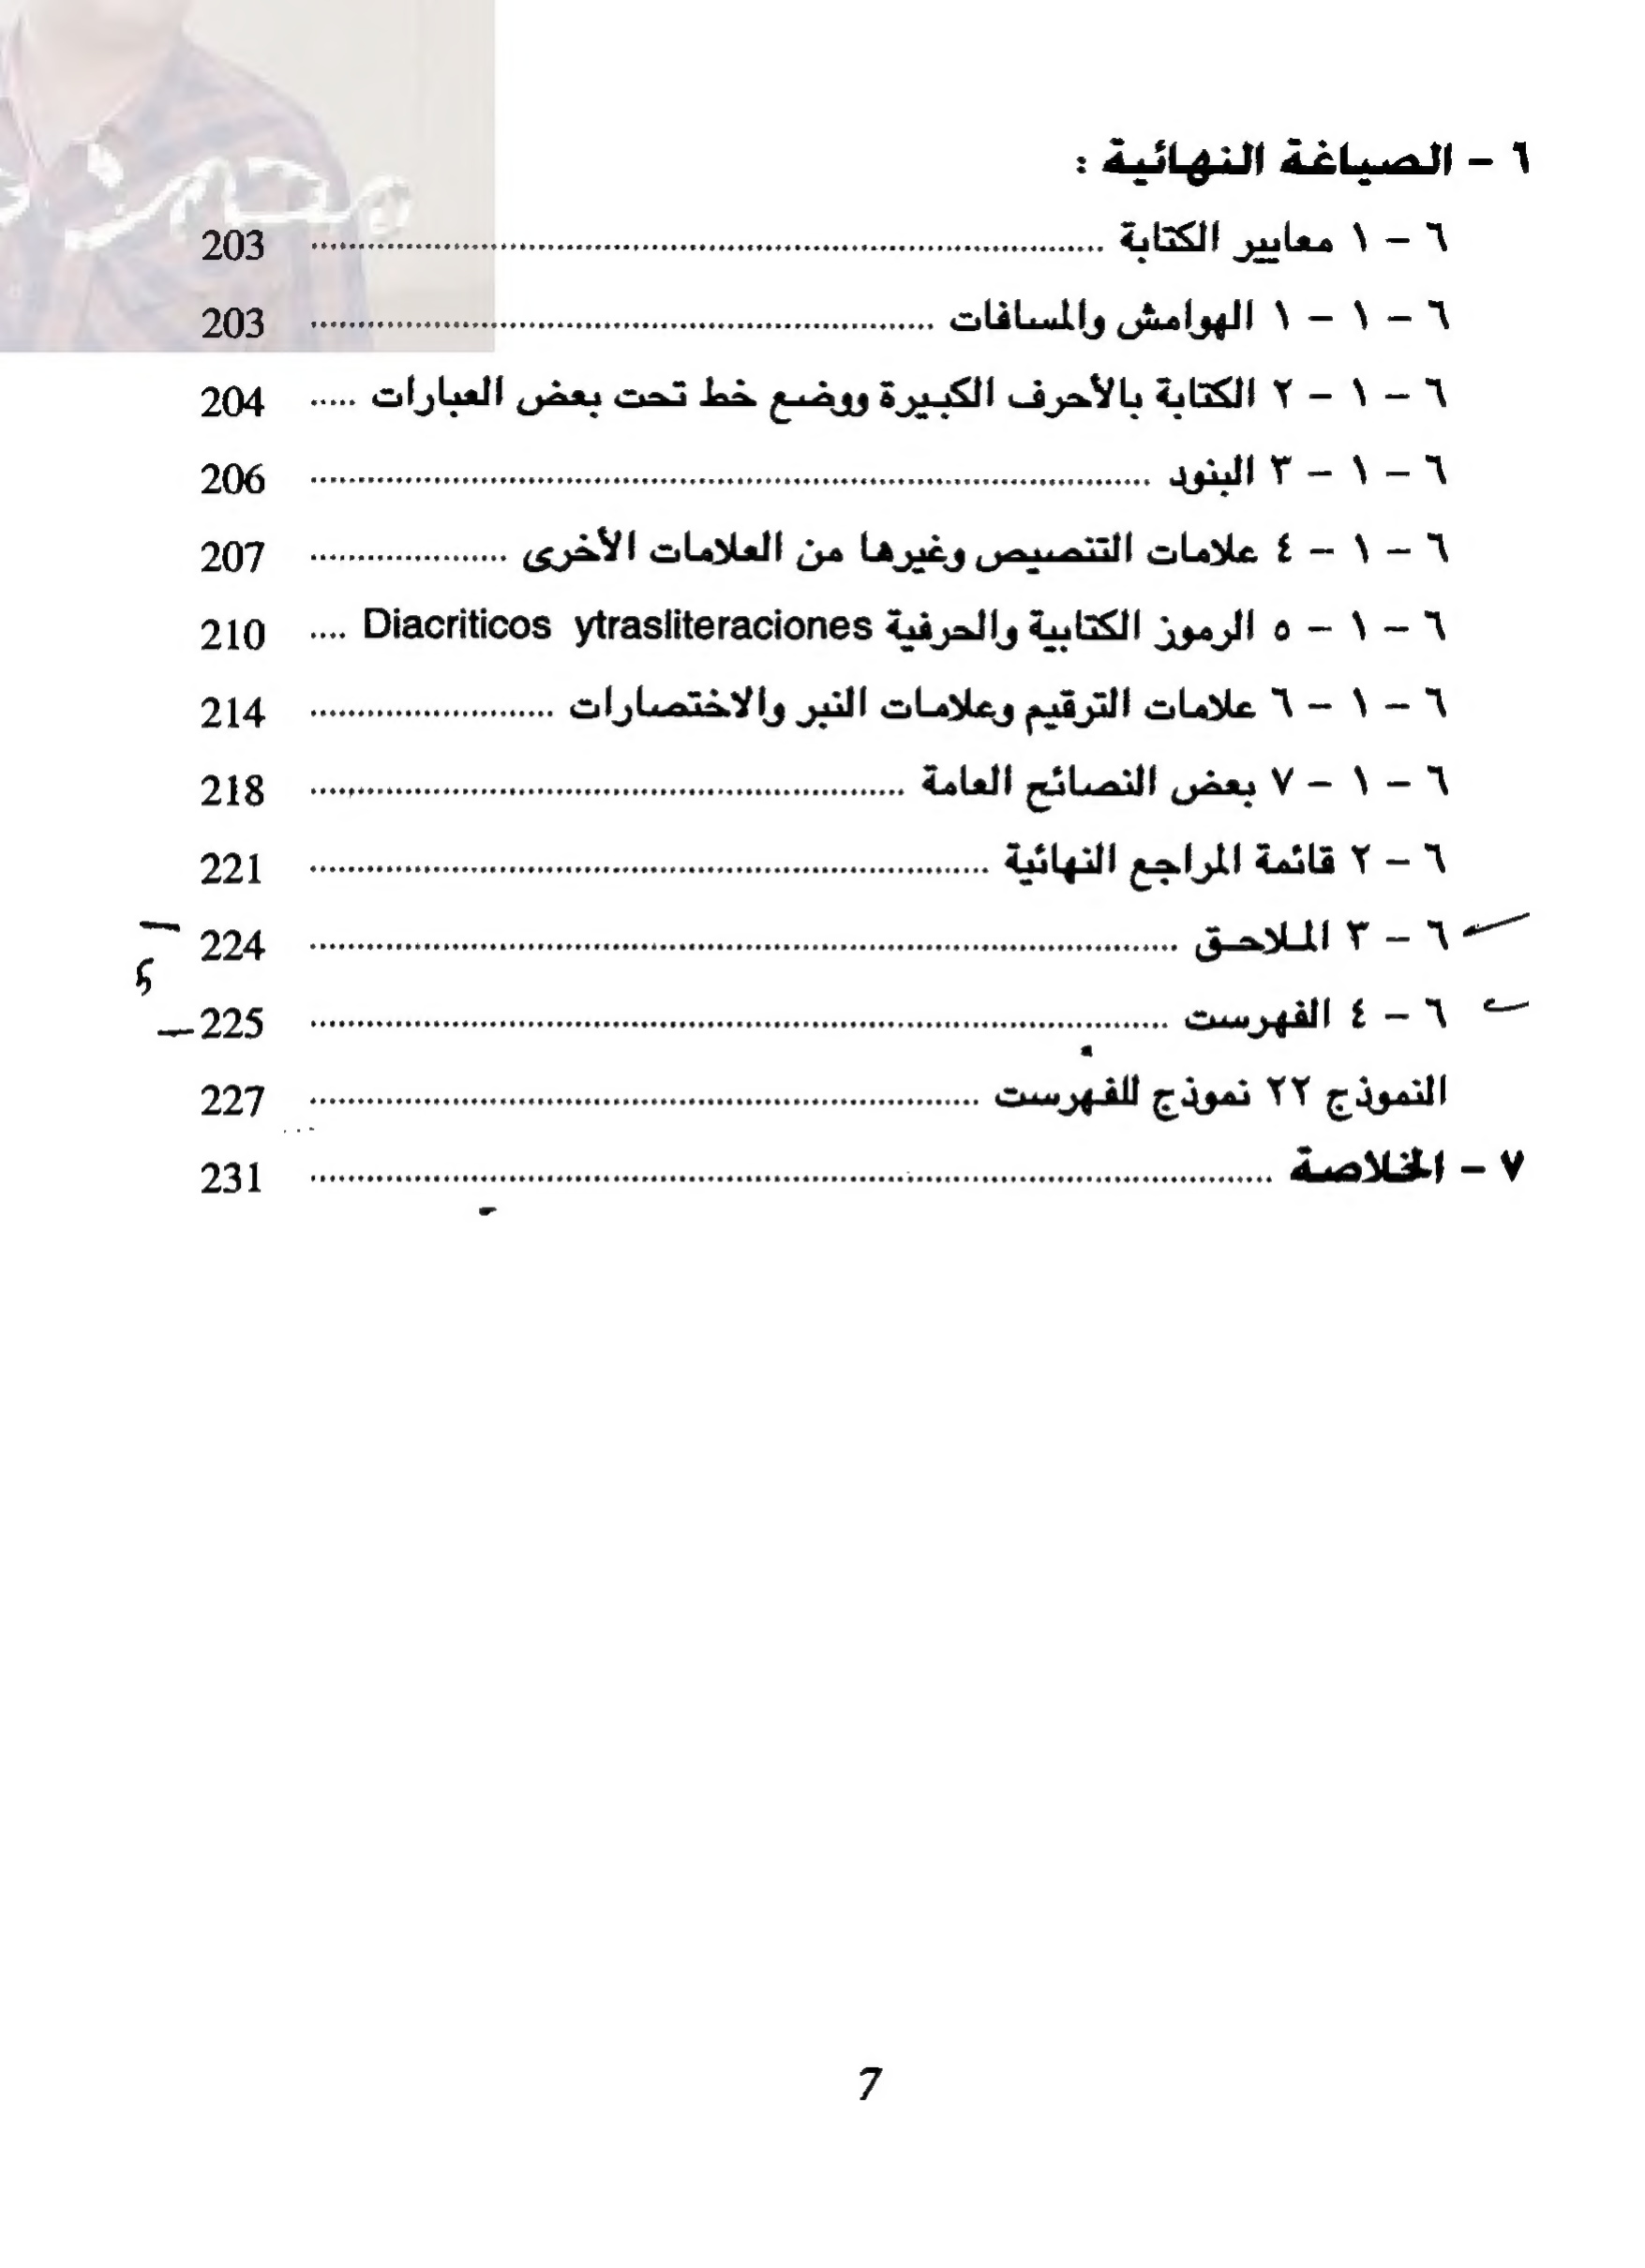 ٦ - الصياغة النهائية :
٦ - ١ معايير الكتابة ........ 203
٦ - ١ - ١ الهوامش والمسافات ........ 203
٦ - ١ - ٢ الكتابة بالأحرف الكبيرة ووضع خط تحت بعض العبارات ..... 204
٦ - ١ - ٣ البنود ........ 206
٦ - ١ - ٤ علامات التنصيص وغيرها من العلامات الأخرى ........ 207
٦ - ١ - ٥ الرموز الكتابية والحرفية Diacriticos ytrasliteraciones .... 210
٦ - ١ - ٦ علامات الترقيم وعلامات النبر والاختصارات ........ 214
٦ - ١ - ٧ بعض النصائح العامة ........ 218
٦ - ٢ قائمة المراجع النهائية ........ 221
٦ - ٣ الملاحق ........ 224
٦ - ٤ الفهرست ........ 225
النموذج ٢٢ نموذج للفهرست ........ 227
٧ - الخلاصة ........ 231
7